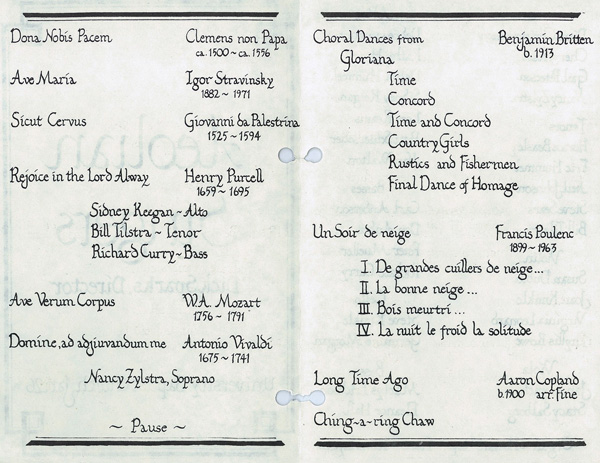 Dona Nobis Pacem Clemens non Papa
ca. 1500 ~ ca. 1556
Ave Maria Igor Stravinsky
1882 ~ 1971
Sicut Cervus Giovanni da Palestrina
1525 ~ 1594
Rejoice in the Lord Alway Henry Purcell
1659 ~ 1695
Sidney Keegan ~ Alto
Bill Tilstra ~ Tenor
Richard Curry ~ Bass
Ave Verum Corpus W.A. Mozart
1756 ~ 1791
Domine, ad adjuvandum me Antonio Vivaldi
1675 ~ 1741
Nancy Zylstra, Soprano
~ Pause ~
Choral Dances from Benjamin Britten
Gloriana b. 1913
Time
Concord
Time and Concord
Country Girls
Rustics and Fishermen
Final Dance of Homage
Un Soir de neige Francis Poulenc
1899 ~ 1963
I. De grandes cuillers de neige...
II. La bonne neige...
III. Bois meurtri...
IV. La nuit le froid la solitude
Long Time Ago Aaron Copland
b. 1900 arr. Fine
Ching~a~ring Chaw